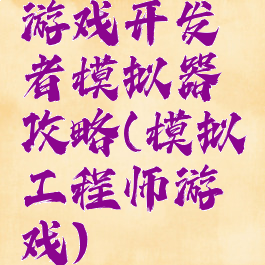 游戏开发
者模拟器
攻略(模拟
工程师游
戏)